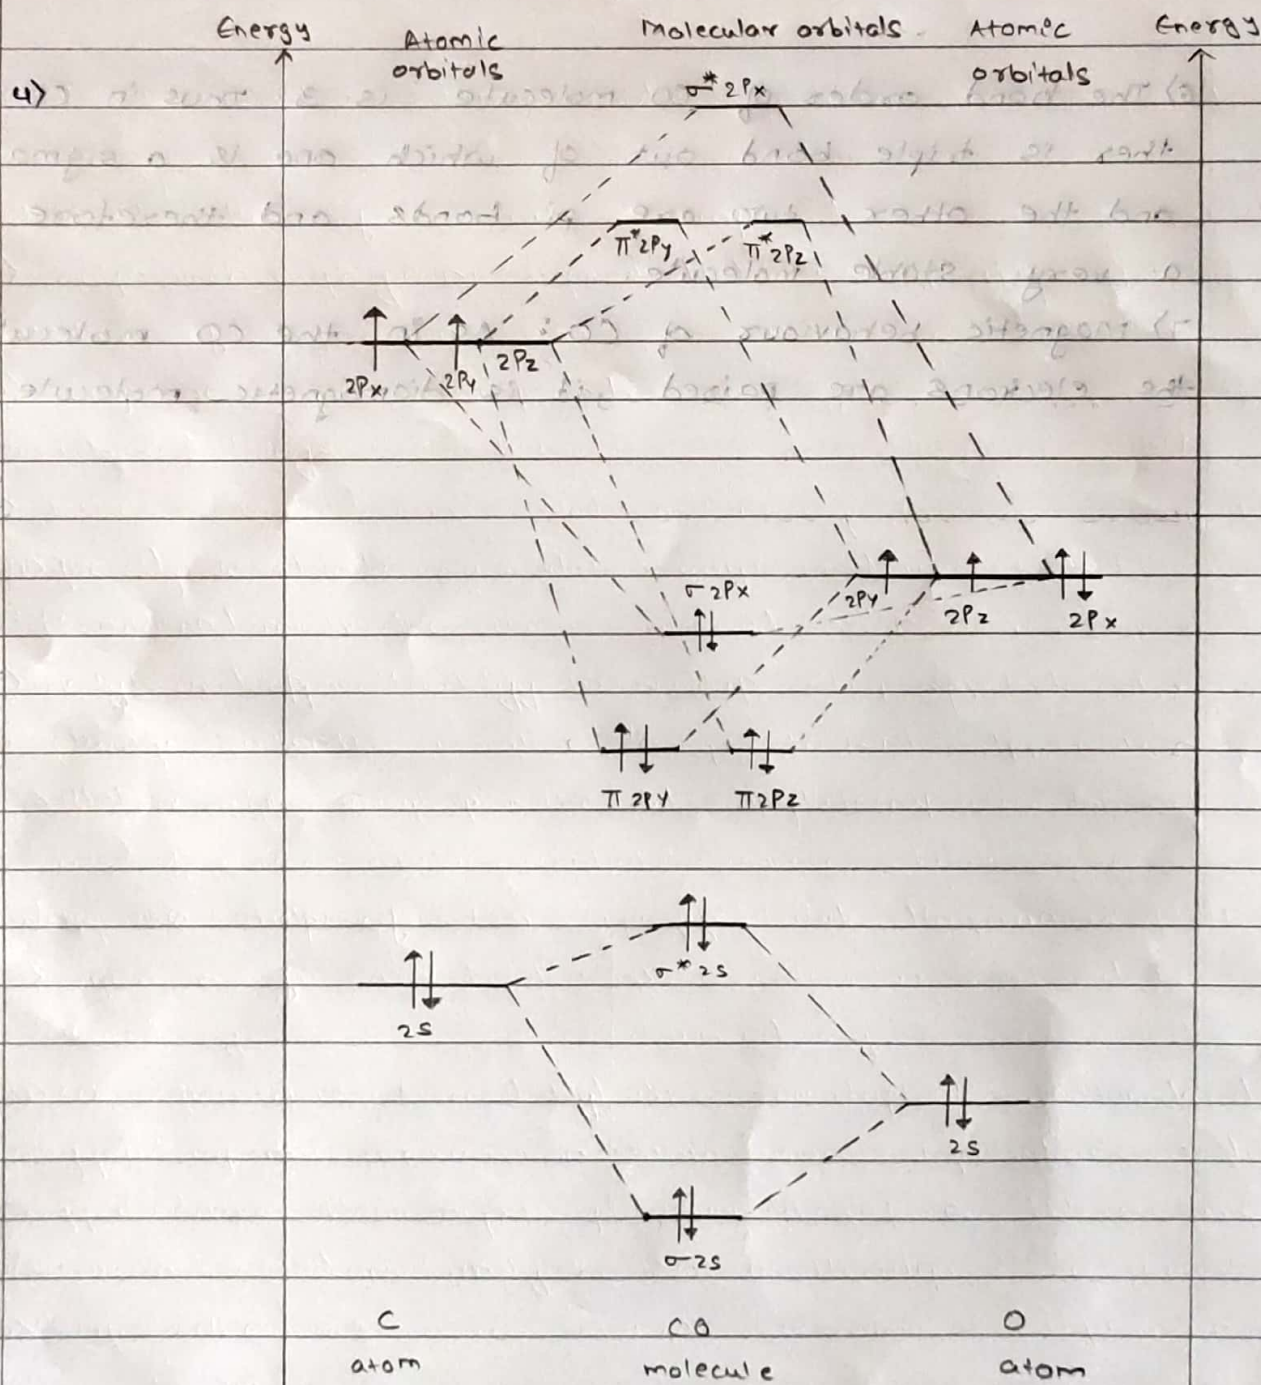 Energy Atomic orbitals Molecular orbitals Atomic orbitals Energy
4)
σ* 2Px
π*2Py π*2Pz
2Px 2Py 2Pz
σ 2Px
2Py 2Pz 2Px
π 2Py π2Pz
σ* 2s
2s
2s
σ 2s
C CO O
atom molecule atom